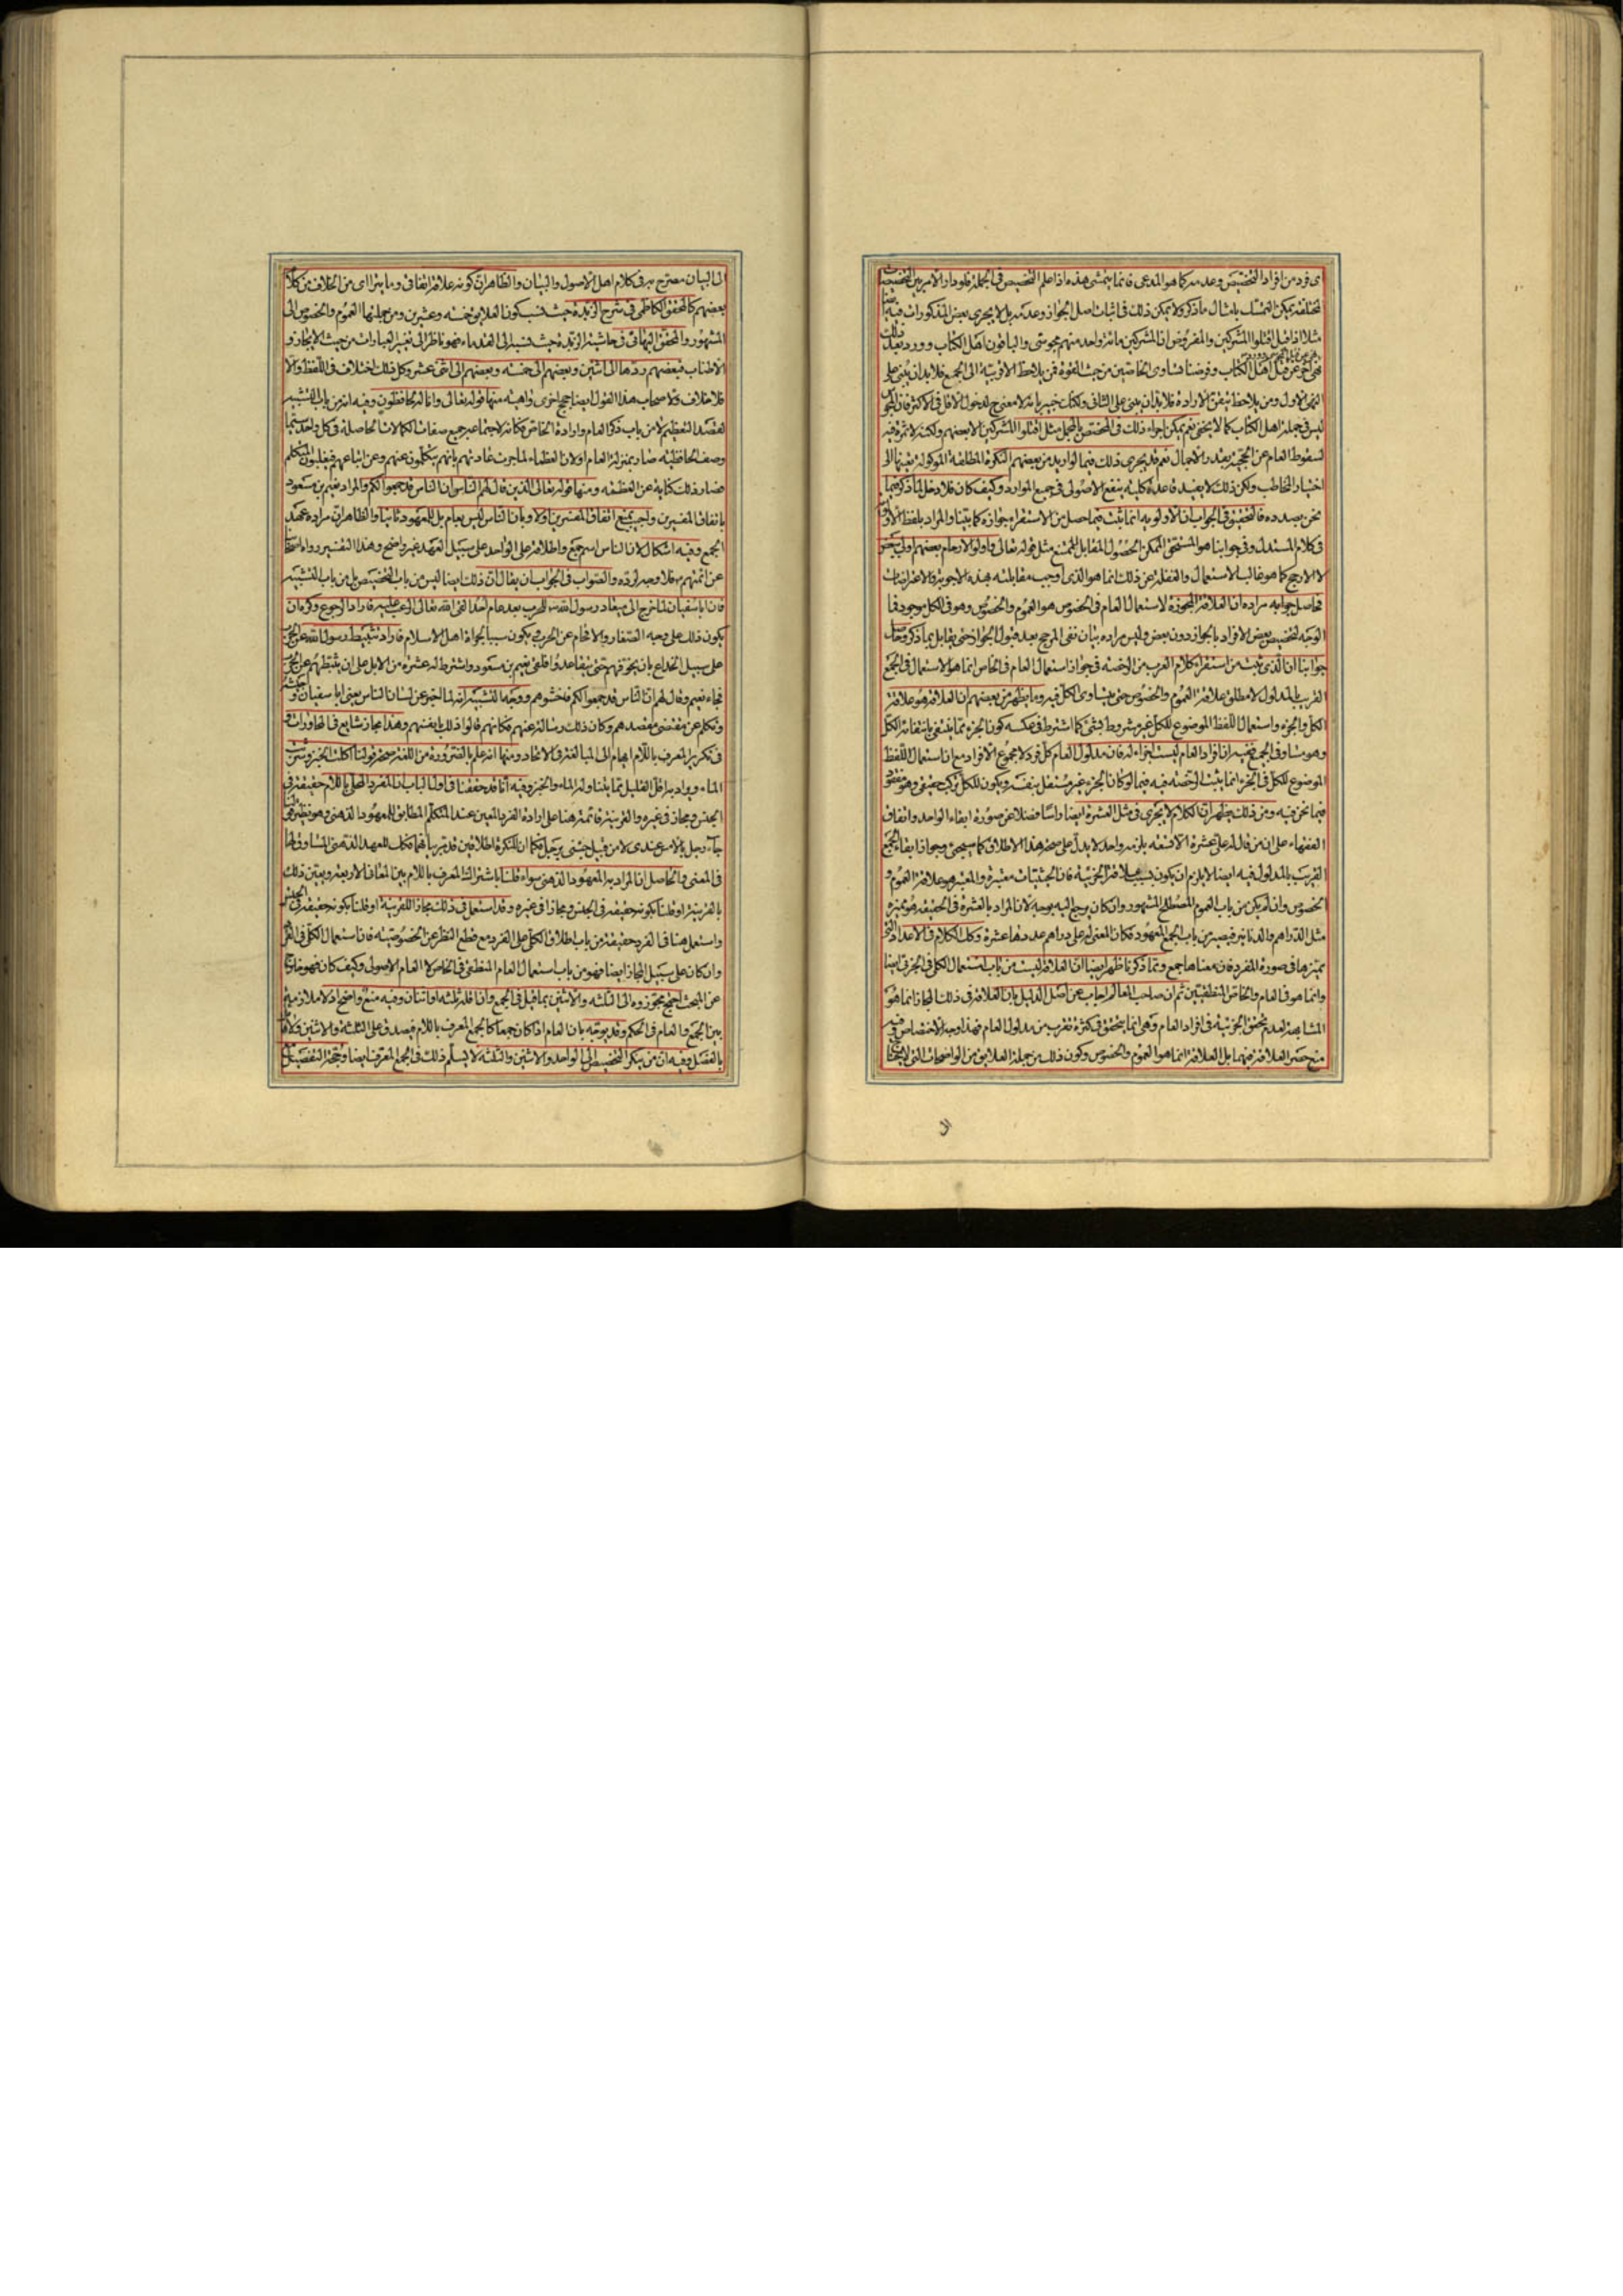 اى فرد من افراد التخصيص وعدمه كما هو المدعى فانما يتمشى هذه اذا علم التخصيص فى الجملة ودار الامر بين التخصيصات
المختلفة يمكن التمسك بامثال ما ذكر ولا يمكن ذلك فى اثبات اصل الجواز وعدمه بل لا يجرى بعض المذكورات فيه ايضا
مثلا اذا قيل اقتلوا المشركين والمفروض ان المشركين مائة واحد منهم مجوسى والباقون اهل الكتاب وورد بعد ذلك
نهى اخر عن قتل اهل الكتاب وفرضنا تساوى الخاصين من حيث القوة فمن يلاحظ الاقربية الى الجمع فلا بد ان يبنى على
النهى الاول ومن يلاحظ تيقن الارادة فلا بد ان يبنى على الثانى ولكنك خبير بانه لا معنى ح لدخول الاقل فى الاكثر فان المجوسى
ليس فى جملة اهل الكتاب كما لا يخفى نعم يمكن اجراء ذلك فى المخصص بالمجمل مثل اقتلوا المشركين الا بعضهم ولكنه لا ثمرة فيه
لسقوط العام عن الحجية بقدر الاجمال نعم قد يجرى ذلك فيما لو اريد من بعضهم النكرة المطلقة الموكولة تعيينها الى
اختيار المخاطب ولكن ذلك لا يفيد قاعدة كلية ينفع الاصولى فى جميع الموارد وكيف كان فلا دخل لما ذكر فيما
نحن بصدده فالتحقيق فى الجواب ان الاولوية انما يثبت فيما حصل من الاستقراء جوازه كما بينا والمراد بلفظ الاولى
فى كلام المستدل وفى جوابنا هو المستحق الممكن الحصول المقابل للممتنع مثل قوله تعالى واولوا الارحام بعضهم اولى ببعض
لا الارجح كما هو غالب الاستعمال والغفلة عن ذلك انما هو الذى اوجب مقابلته بهذه الاجوبة والاعتراضات
فحاصل جوابه مراده ان العلاقة المجوزة لاستعمال العام فى الخصوص هو العموم والخصوص وهو فى الكل موجود فما
الوجه لتخصيص بعض الافراد بالجواز دون بعض وليس مراده بيان نفى المرجح بعد قبول الجواز حتى يقابل بما ذكر وحاصل
جوابنا ان الذى ثبت من استقراء كلام العرب من الرخصة فى جواز استعمال العام فى الخاص انما هو الاستعمال فى الجمع
القريب بالمدلول لا مطلق علاقة العموم والخصوص حتى يتساوى الكل فيه وما يظهر من بعضهم ان العلاقة هو علاقة
الكل والجزء واستعمال اللفظ الموضوع للكل غير مشروط بشئ كما اشترط فى عكسه كون الجزء مما ينتفى بانتفائه الكل
وهو متساو فى الجميع فيه ان افراد العام ليست اجزاء له فان مدلول العام كل فرد لا مجموع الافراد مع ان استعمال اللفظ
الموضوع للكل فى الجزء انما يثبت الرخصة فيه فيما لو كان الجزء غير مستقل بنفسه ويكون للكل تركيب حقيقى وهو مفقود
فيما نحن فيه ومن ذلك يظهر ان الكلام لا يجرى فى مثل العشرة ايضا راسا فضلا عن صورة ابقاء الواحد واتفاق
الفقهاء على ان من قال له على عشرة الا تسعة يلزمه واحد لا يدل على صحة هذا الاطلاق كما سيجئ وجواز ابقاء الجمع
القريب بالمدلول فيه ايضا لا يلزم ان يكون بسبب علاقة الجزئية فان الحيثيات معتبرة والمعتبر هو علاقة العموم و
الخصوص وان لم يكن من باب العموم المصطلح المشهور وان كان يرجع اليه بوجه لان المراد بالعشرة فى الحقيقة هو مميزه
مثل الدراهم والدنانير فيصير من باب الجمع المعهود فكان المعنى له على دراهم عددها عشرة وكك الكلام فى الاعداد التى
مميزها فى صورة المفرد فان معناها جمع ومما ذكرنا ظهر ايضا ان العلاقة ليست من باب استعمال الكلى فى الجزئى ايضا
وانما هو فى العام والخاص المنطقيين ثم ان صاحب المعالم اجاب عن اصل الدليل بان العلاقة فى ذلك المجاز انما هو
المشابهة لعدم تحقق الجزئية فى افراد العام وهى انما يتحقق فى كثرة تقرب من مدلول العام فهذا وجه الاختصاص وفيه
منع حصر العلاقة فيهما بل العلاقة انما هو العموم والخصوص وكون ذلك من جملة العلايق من الواضحات التى لا يحتاج
الى
الى البيان مصرح به فى كلام اهل الاصول والبيان والظاهر ان كونه علاقة اتفاقى وما يترااى من الخلاف من كلام
بعضهم كالمحقق الكاظمى فى شرح الزبدة حيث نسب كون العلايق خمسة وعشرين ومن جملتها العموم والخصوص الى
المشهور والمحقق البهائى فى حاشية الزبدة حيث نسبه الى القدماء فهو ناظر الى تغيير العبارات من حيث الايجاز و
الاطناب فبعضهم ردها الى اثنين وبعضهم الى خمسة وبعضهم الى اثنى عشر وكل ذلك اختلاف فى اللفظ والا
فلا خلاف ولاصحاب هذا القول ايضا حجج اخرى واهية منها قوله تعالى وانا له لحافظون وفيه انه من باب التشبيه
لقصد التعظيم لا من باب ذكر العام وارادة الخاص فكانه لاجتماعه جميع صفات الكمالات الحاصلة فى كل واحد سيما
وصف الحافظية صار بمنزلة العام او لان العظماء لما جرت عادتهم بانهم يتكلمون عنهم وعن اتباعهم فيغلبون المتكلم
فصار ذلك كناية عن العظمة ومنها قوله تعالى الذين قال لهم الناس ان الناس قد جمعوا لكم والمراد نعيم بن مسعود
باتفاق المفسرين واجيب بمنع اتفاق المفسرين اولا وبان الناس ليس بعام بل للمعهود ثانيا والظاهر ان مراده عهد
الجمع وفيه اشكال لان الناس اسم جمع واطلاقه على الواحد على سبيل العهد غير واضح وهذا التفسير رواه اصحابنا
عن ائمتهم ع فلا وجه لرده والصواب فى الجواب ان يقال ان ذلك ايضا ليس من باب التخصيص بل من باب التشبيه
فان ابا سفيان لما خرج الى ميعاد رسول الله ص للحرب بعد عام احد القى الله تعالى الرعب عليه فاراد الرجوع وكره ان
يكون ذلك على وجه الصغار والافحام عن الحرب ويكون سببا لجراة اهل الاسلام فاراد تثبيط رسول الله عن الحرب
على سبيل الخداع بان يخوفهم حتى يتقاعدوا فلقى نعيم بن مسعود واشترط له عشرة من الابل على ان يثبطهم عن الحرب
فجاء نعيم وقال لهم ان الناس قد جمعوا لكم فاخشوهم ووجه التشبيه انه لما اخبر عن لسان الناس يعنى ابا سفيان وجيشه
وتكلم عن مقتضى مقصدهم وكان ذلك رسالة عنهم فكانهم قالوا ذلك بانفسهم وهذا مجاز شايع فى المحاورات و
فى تكرير المعرف باللام ايهام الى المبالغة فى الاتحاد ومنها انه علم بالضرورة من اللغة صحة قولنا اكلت الخبز وشربت
الماء ويراد به اقل القليل مما يتناوله الماء والخبز وفيه انا قد حققنا فى اول الباب ان المفرد المحلى باللام حقيقة فى
الجنس ومجاز فى غيره والقرينة قائمة هنا على ارادة الفرد المعين عند المتكلم المطابق للمعهود الذهنى وهو نظير قولى
جاء رجل بالامس عندى لا من قبيل جئنى برجل فكما ان للنكرة اطلاقين قد مر بيانهما فكك للمعهود الذهنى المساوق لها
فى المعنى والحاصل ان المراد به المعهود الذهنى سواء قلنا باشتراك المعرف باللام بين المعانى الاربعة وبعين ذلك
بالقرينة او قلنا بكونه حقيقة فى الجنس ومجازا فى غيره وقد استعمل فى ذلك مجازا للقرينة او قلنا بكونه حقيقة فى الجنس
واستعمل هنا فى الفرد حقيقة من باب اطلاق الكلى على الفرد مع قطع النظر عن الخصوصية فان استعمال الكلى فى الفرد
وان كان على سبيل المجاز ايضا فهو من باب استعمال العام المنطقى فى الخاص لا العام الاصولى وكيف كان فهو خارج
عن المبحث احتج مجوزوه الى الثلثة والاثنين بما قيل فى الجمع وان اقله ثلثة او اثنان وفيه منع واضح اذ لا ملازمة
بين الجمع والعام فى الحكم وقد يوجه بان العام اذا كان جمعا كالجمع المعرف باللام فيصدق على الثلثة والاثنين ولا قائل
بالفصل وفيه ان من ينكر التخصيص الى الواحد والاثنين والثلثة لا يسلم ذلك فى الجمع المعرف ايضا وحجة التفصيل